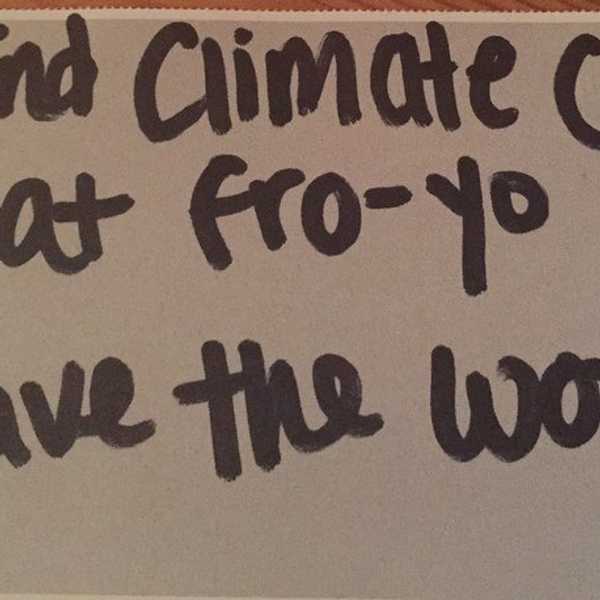 nd Climate C
at Fro-yo
ave the wo